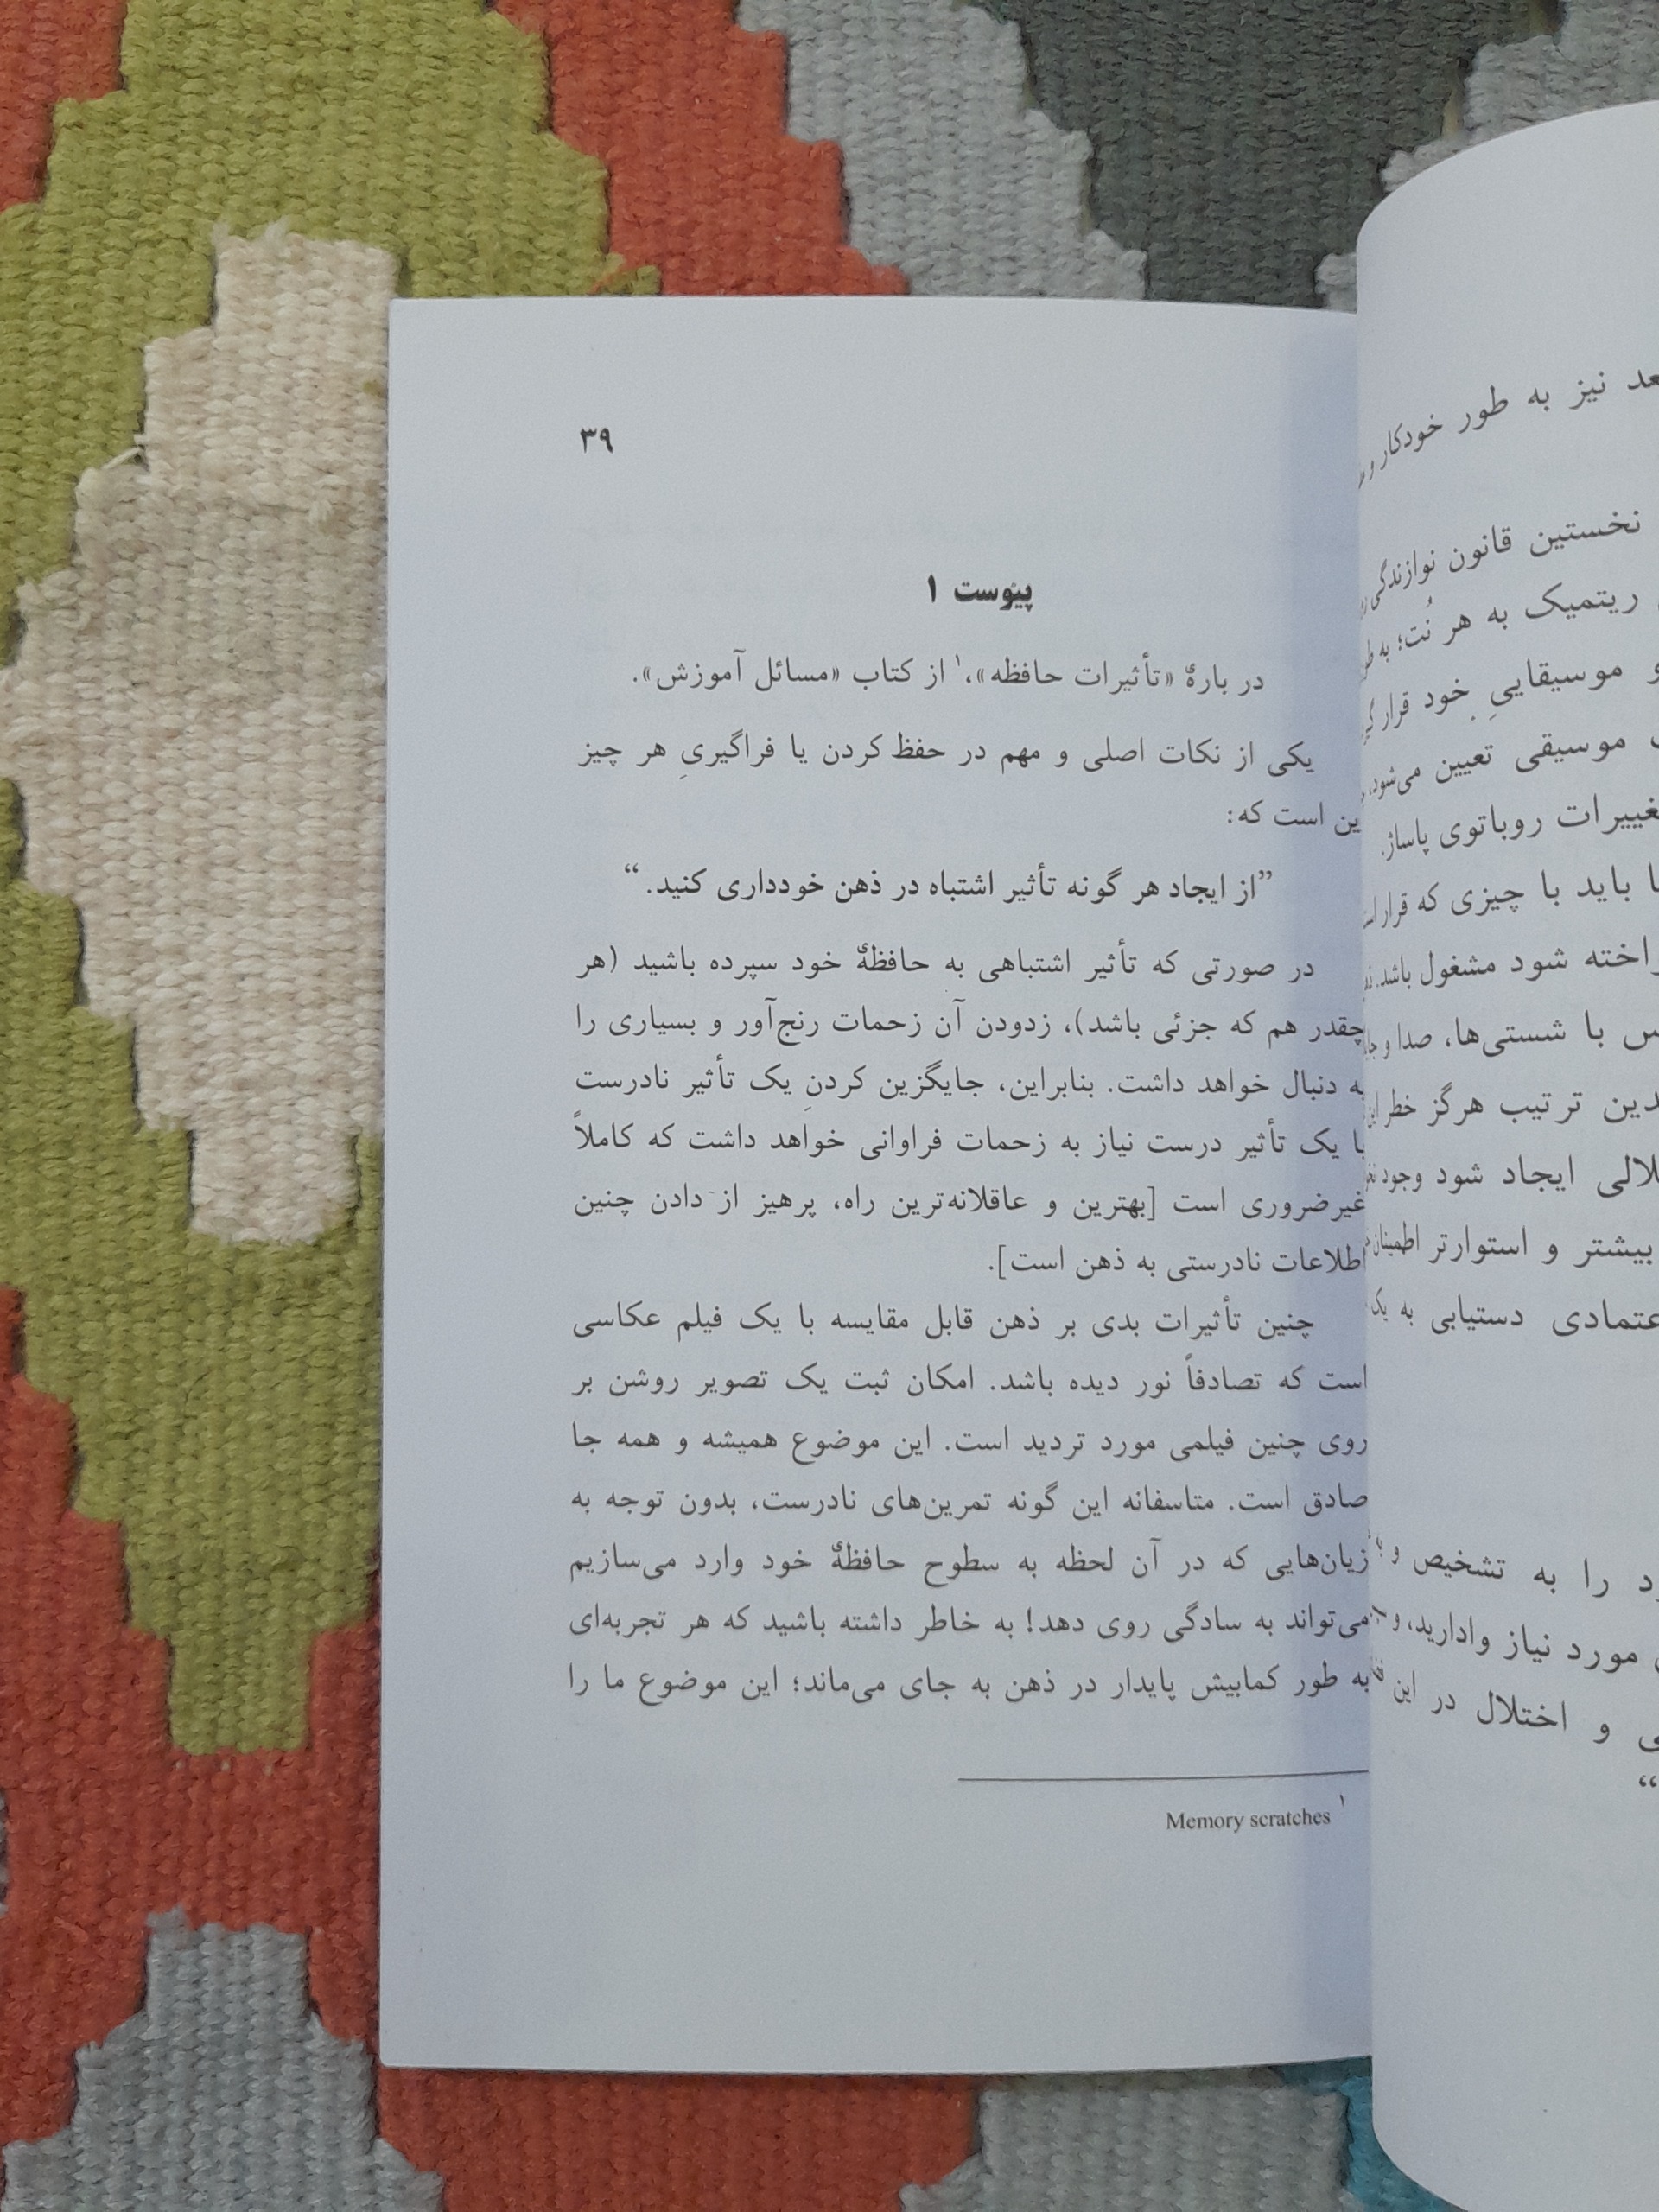 ۳۹
پیوست ۱
در بارهٔ «تأثیرات حافظه»،۱ از کتاب «مسائل آموزش».
یکی از نکات اصلی و مهم در حفظ کردن یا فراگیریِ هر چیز
ین است که:
”از ایجاد هر گونه تأثیر اشتباه در ذهن خودداری کنید.“
در صورتی که تأثیر اشتباهی به حافظهٔ خود سپرده باشید (هر
چقدر هم که جزئی باشد)، زدودن آن زحمات رنج‌آور و بسیاری را
به دنبال خواهد داشت. بنابراین، جایگزین کردنِ یک تأثیر نادرست
با یک تأثیر درست نیاز به زحمات فراوانی خواهد داشت که کاملاً
غیرضروری است [بهترین و عاقلانه‌ترین راه، پرهیز از دادن چنین
اطلاعات نادرستی به ذهن است].
چنین تأثیرات بدی بر ذهن قابل مقایسه با یک فیلم عکاسی
است که تصادفاً نور دیده باشد. امکان ثبت یک تصویر روشن بر
روی چنین فیلمی مورد تردید است. این موضوع همیشه و همه جا
صادق است. متاسفانه این گونه تمرین‌های نادرست، بدون توجه به
زیان‌هایی که در آن لحظه به سطوح حافظهٔ خود وارد می‌سازیم
می‌تواند به سادگی روی دهد! به خاطر داشته باشید که هر تجربه‌ای
به طور کمابیش پایدار در ذهن به جای می‌ماند؛ این موضوع ما را
۱ Memory scratches
نیز به طور خودکار و
نخستین قانون نوازندگی
ریتمیک به هر نُت؛ به
و موسیقاییِ خود قرار
موسیقی تعیین می‌شود،
تغییرات روباتوی پاساژ.
باید با چیزی که قرار
شود مشغول باشد.
با شستی‌ها، صدا و
ترتیب هرگز خطر
ایجاد شود وجود
بیشتر و استوارتر اطمینان
دستیابی به یک
را به تشخیص و
مورد نیاز وادارید، و
و اختلال در این
“